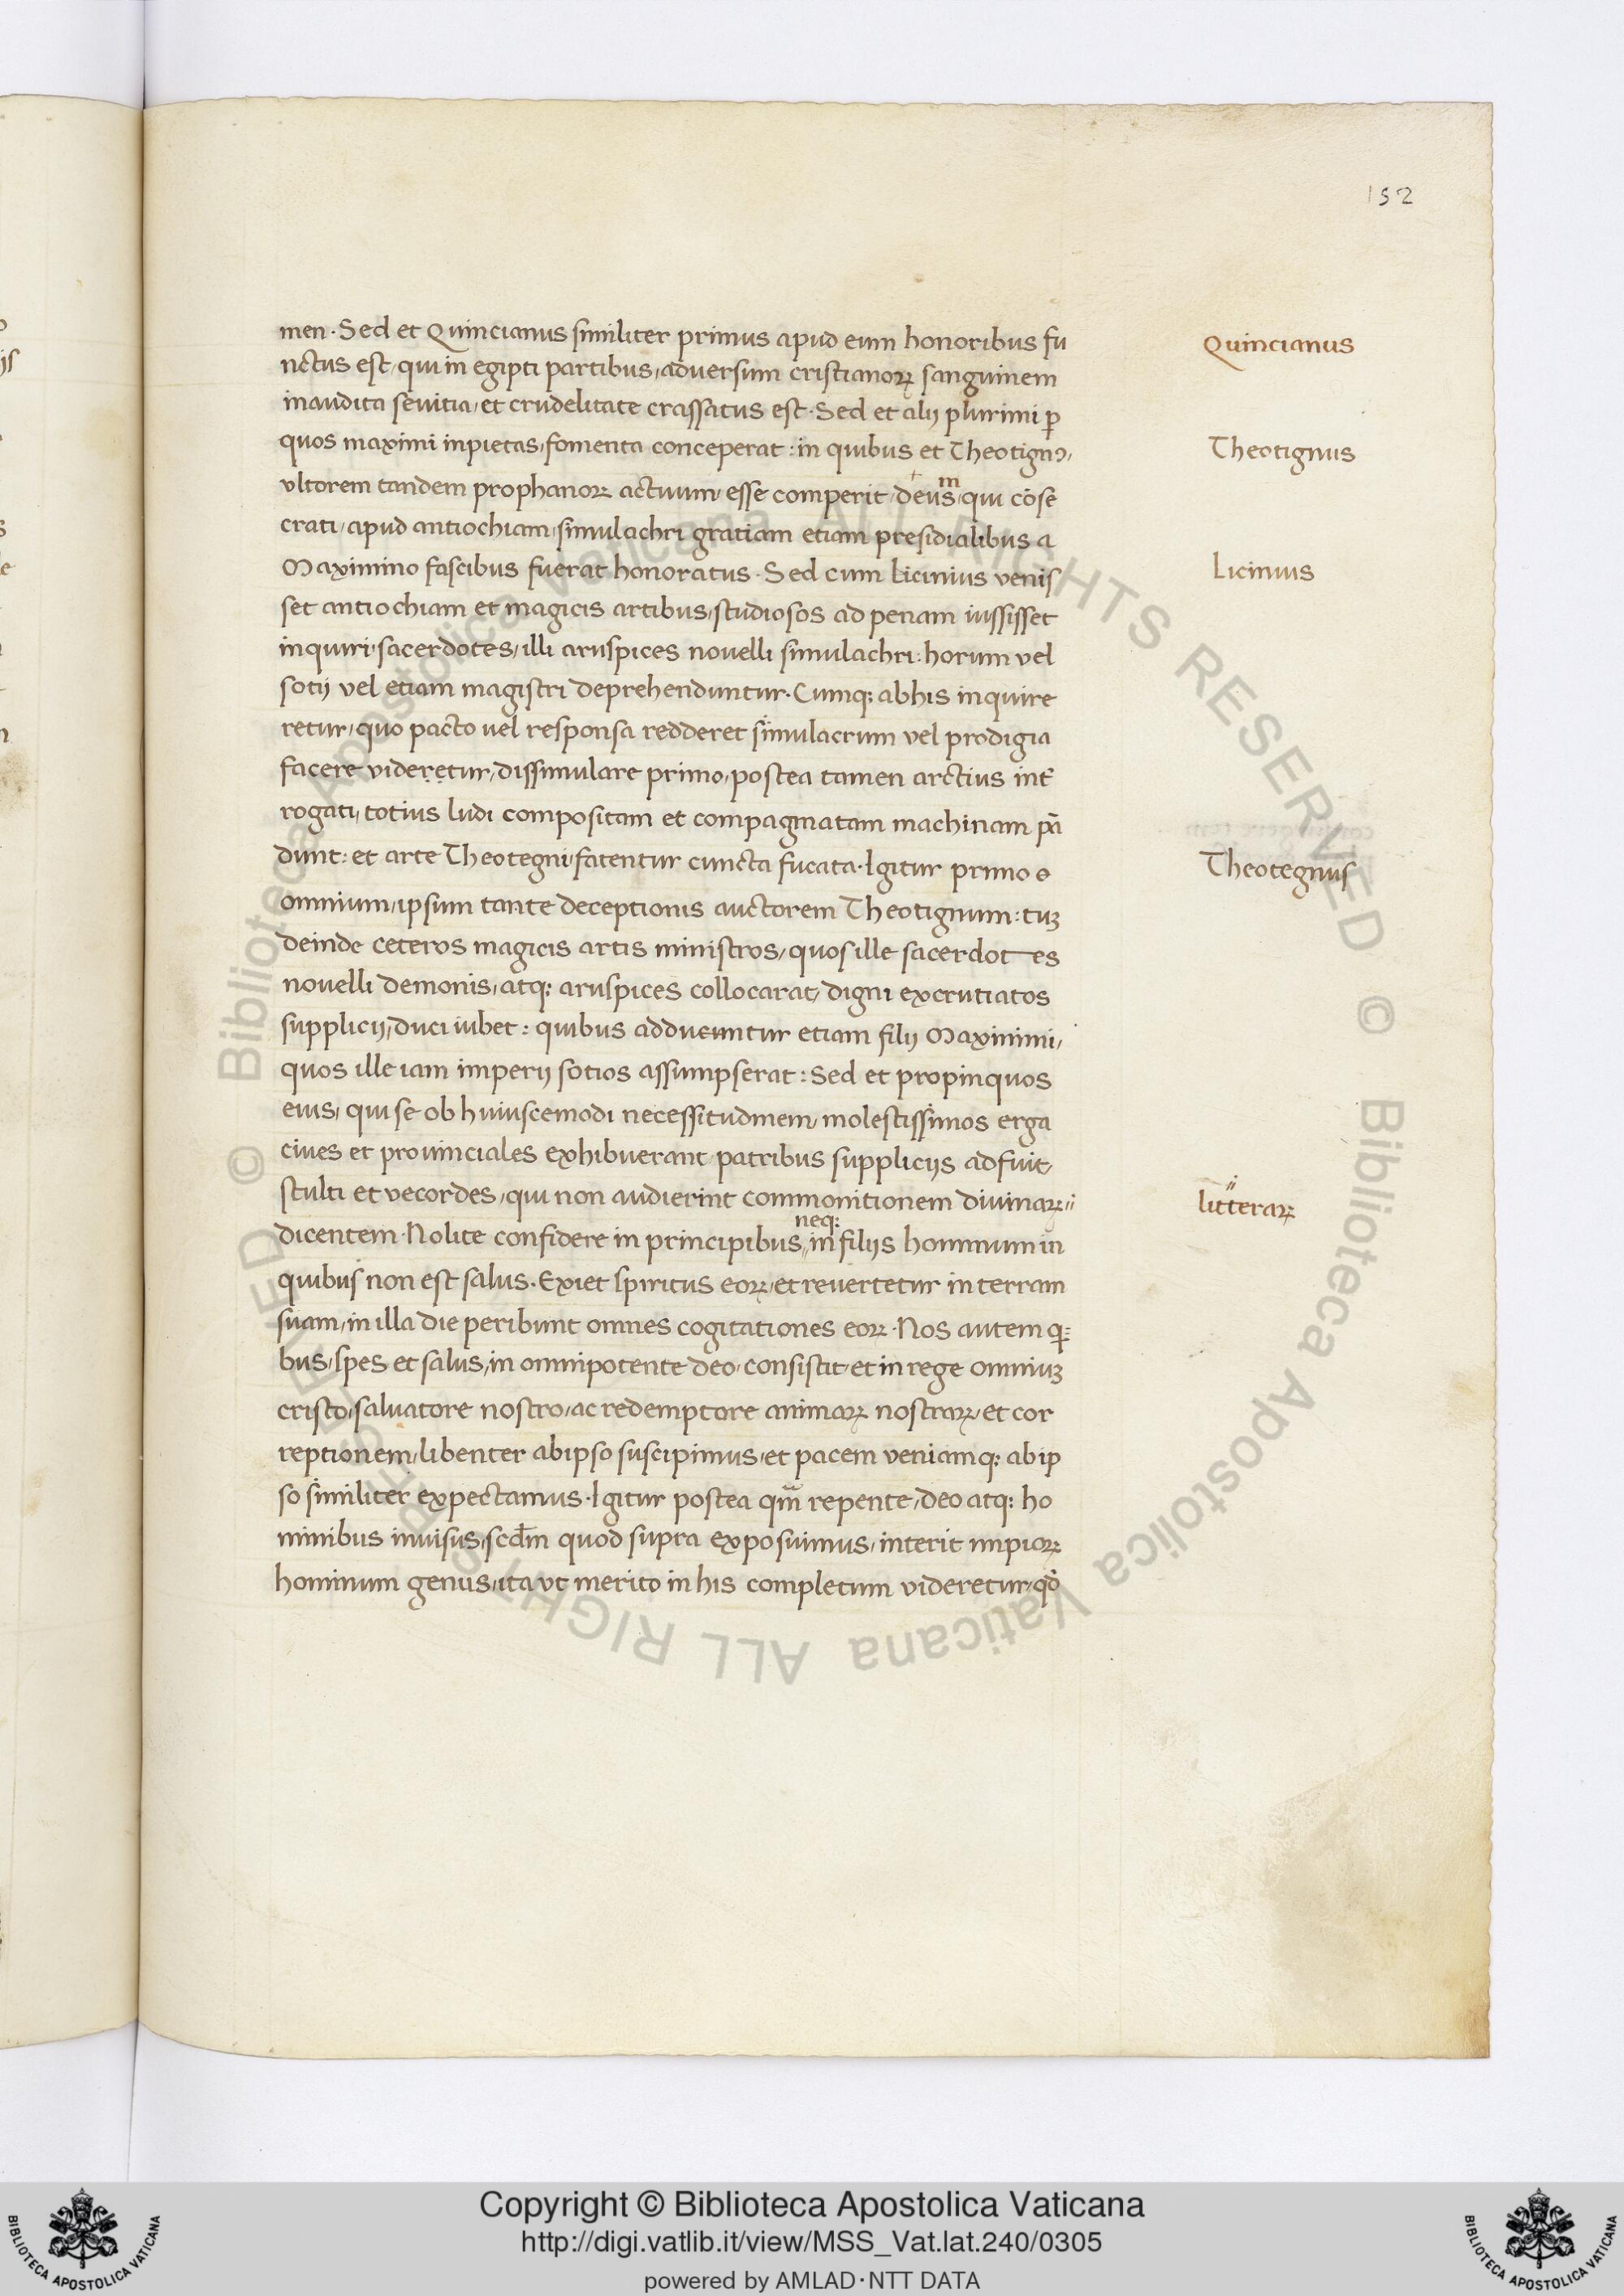 152
men · Sed et Quincianus similiter primus apud eum honoribus fu
nctus est, qui in egipti partibus, adversum cristianoꝝ sanguinem
inaudita sevitia, et crudelitate crassatus est. Sed et alij plurimi ꝑ
quos maximi inpietas, fomenta conceperat: in quibus et Theotignꝰ,
vltorem tandem prophanoꝝ actuum, esse comperit, deus, qui cōse
m
crati, apud antiochiam, simulachri gratiam etiam presidialibus a
Maximino fascibus fuerat honoratus. Sed cum Licinius venis
set antiochiam et magicis artibus, studiosos ad penam iussisset
inquiri, sacerdotes, illi aruspices novelli simulachri: horum vel
sotij vel etiam magistri deprehenduntur. Cumqꝫ abhis inquire
retur, quo pacto uel responsa redderet simulacrum vel prodigia
facere videretur, dissimulare primo, postea tamen arctius int̄
rogati, totius ludi compositam et compaginatam machinam pā
dunt: et arte Theotegni, fatentur cuncta fucata. Igitur primo o
omnium, ipsum tante deceptionis auctorem Theotignum: tuꝫ
deinde ceteros magicis artis ministros, quos ille sacerdotes
novelli demonis, atqꝫ aruspices collocarat, digni excrutiatos
supplicij, duci iubet: quibus adduuntur etiam filij Maximini,
quos ille iam imperij sotios assumpserat: Sed et propinquos
eius, qui se ob huiuscemodi necessitudinem, molestissimos erga
cives et provinciales exhibuerant, patribus supplicijs adfuit,
stulti et vecordes, qui non audierint commonitionem divinaꝝ"
neqꝫ
dicentem. Nolite confidere in principibus,, in filijs hominum in
quibus non est salus. Exiet spiritus eoꝝ, et revertetur in terram
suam, in illa die peribunt omnes cogitationes eoꝝ. Nos autem qꝫ
bus, spes et salus, in omnipotente deo, consistit, et in rege omniuꝫ
cristo, salvatore nostro, ac redemptore animaꝝ nostraꝝ, et cor
reptionem, libenter abipso suscipimus, et pacem veniamqꝫ abip
so similiter expectamus. Igitur postea qm̄ repente, deo atqꝫ ho
minibus invisus, scd̄m quod supra exposuimus, interit impioꝝ
hominum genus, ita vt merito in his completum videretur, qď
Quincianus
Theotignus
Licinius
Theotegnus
"
litteraꝝ
Copyright © Biblioteca Apostolica Vaticana
http://digi.vatlib.it/view/MSS_Vat.lat.240/0305
powered by AMLAD·NTT DATA
BIBLIOTECA APOSTOLICA VATICANA
BIBLIOTECA APOSTOLICA VATICANA
© Biblioteca Apostolica Vaticana ALL RIGHTS RESERVED
© Biblioteca Apostolica Vaticana ALL RIGHTS RESERVED